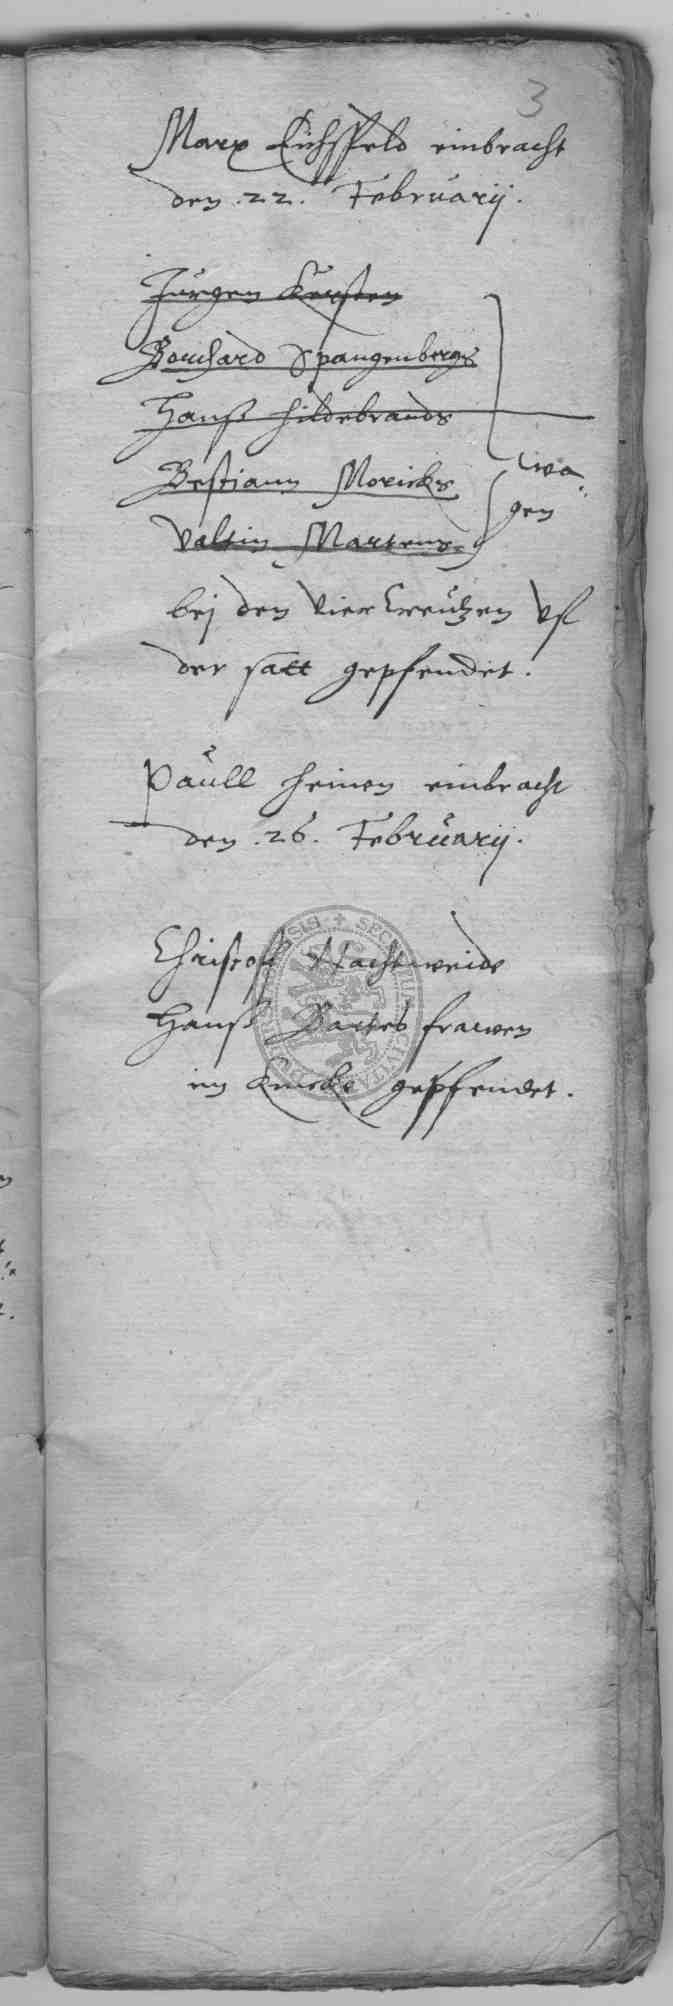 3
Marx Eichsfeld einbracht
den .22. Februarij.
Jurgen Kersten
Borchard Spangenbergs
Hanß Hildebrands
Bestiann Moricks
Valtin Martens
wa:
gen
bej den Vier Creutzen Vf
der satt gepfendet.
Paull Heinen einbracht
den .26. Februarij.
Christoff Nachtweide
Hanß frawen
im gepfendet.